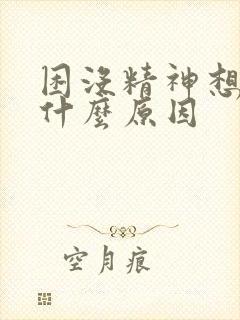 困没精神想
什麽原因
空月痕